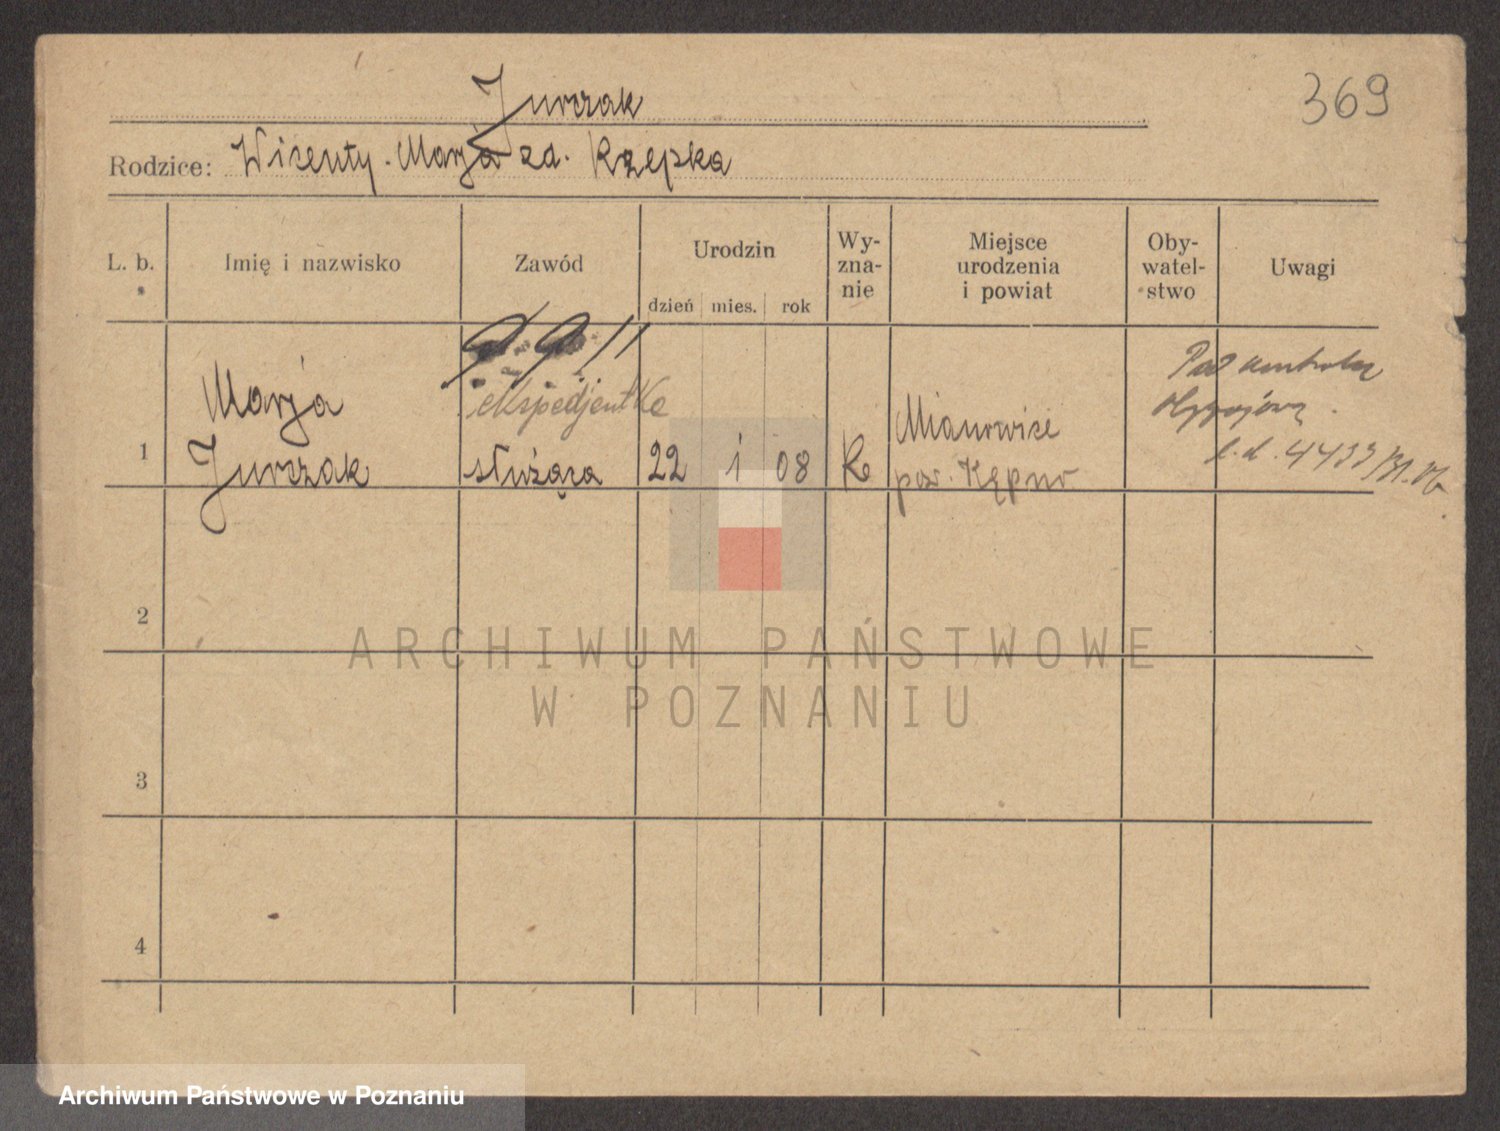 369
Jurczak
Rodzice: Wicenty. Marja zd. Rzepka
L. b.
Imię i nazwisko
Zawód
Urodzin
dzień mies. rok
Wy-
zna-
nie
Miejsce
urodzenia
i powiat
Oby-
watel-
stwo
Uwagi
1
Marja
Jurczak
ekspedjentka
służąca
22 i 08
K
Mianowice
pow. Kępno
Pod kontrolą
l.d. 4433
2
3
4
ARCHIWUM PAŃSTWOWE
W POZNANIU
Archiwum Państwowe w Poznaniu